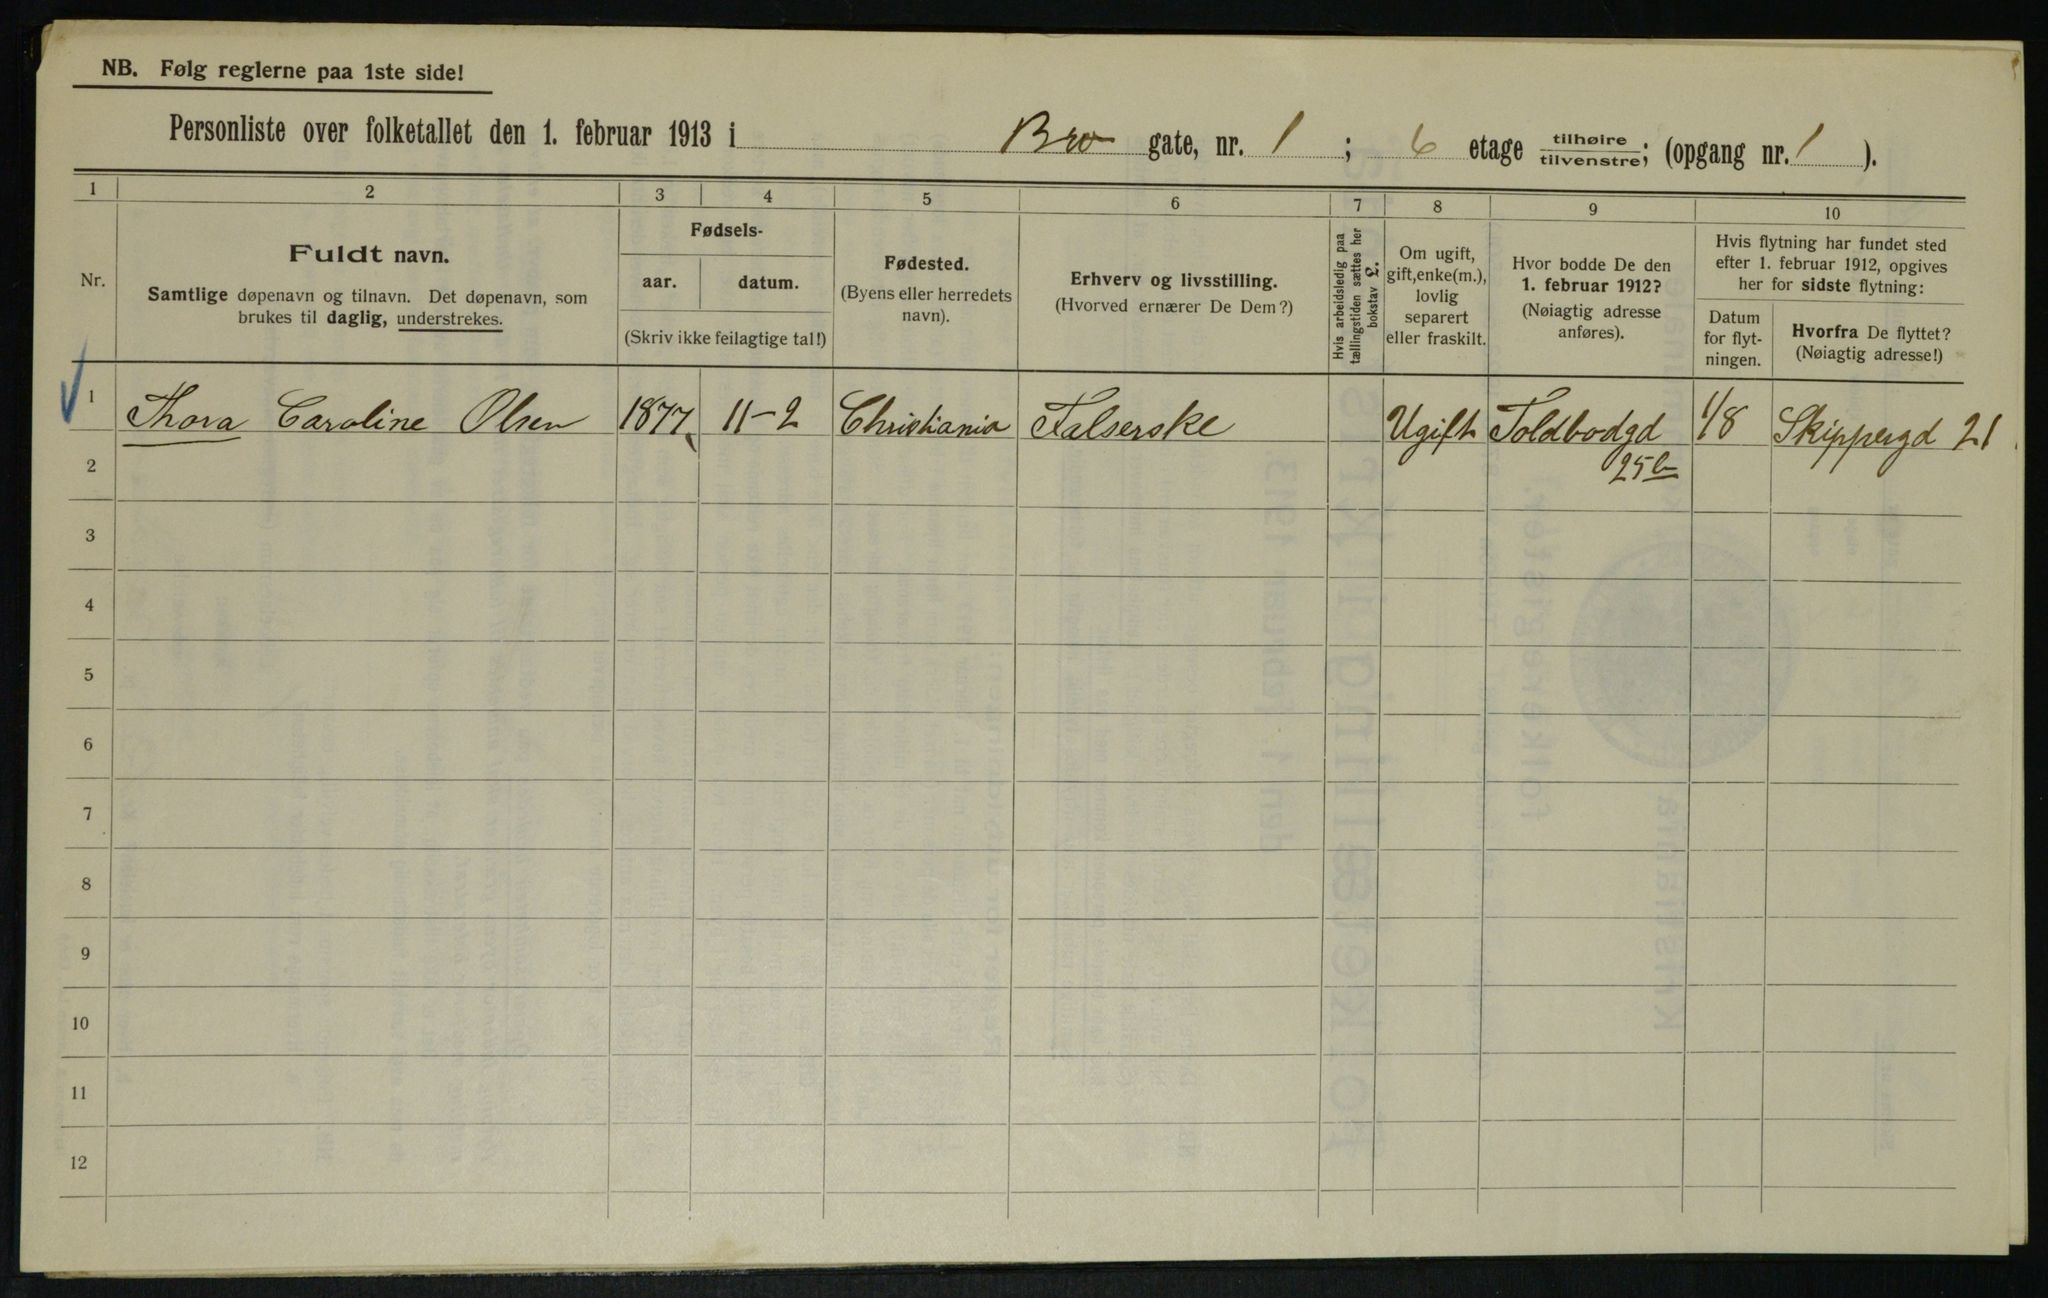 NB. Følg reglerne paa 1ste side!
Personliste over folketallet den 1. februar 1913 i Bro gate, nr. 1 ; 6 etage tilhøire tilvenstre; (opgang nr. 1 ).
1 2 3 4 5 6 7 8 9 10
Nr.
Fuldt navn.
Samtlige døpenavn og tilnavn. Det døpenavn, som
brukes til daglig, understrekes.
Fødsels-
aar. datum.
(Skriv ikke feilagtige tal!)
Fødested.
(Byens eller herredets
navn).
Erhverv og livsstilling.
(Hvorved ernærer De Dem?)
Hvis arbeidsledig paa
tællingstiden sættes her
bokstav £.
Om ugift,
gift, enke(m.),
lovlig
separert
eller fraskilt.
Hvor bodde De den
1. februar 1912?
(Nøiagtig adresse
anføres).
Hvis flytning har fundet sted
efter 1. februar 1912, opgives
her for sidste flytning:
Datum
for flyt-
ningen.
Hvorfra De flyttet?
(Nøiagtig adresse!)
1 Thora Caroline Olsen 1877 11-2 Christiania Falserske Ugift Toldbodgd 1/8 Skippergd 21
25
2
3
4
5
6
7
8
9
10
11
12